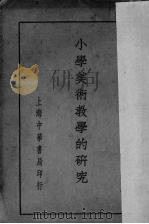 小學美術教學的研究
上海中華書局印行